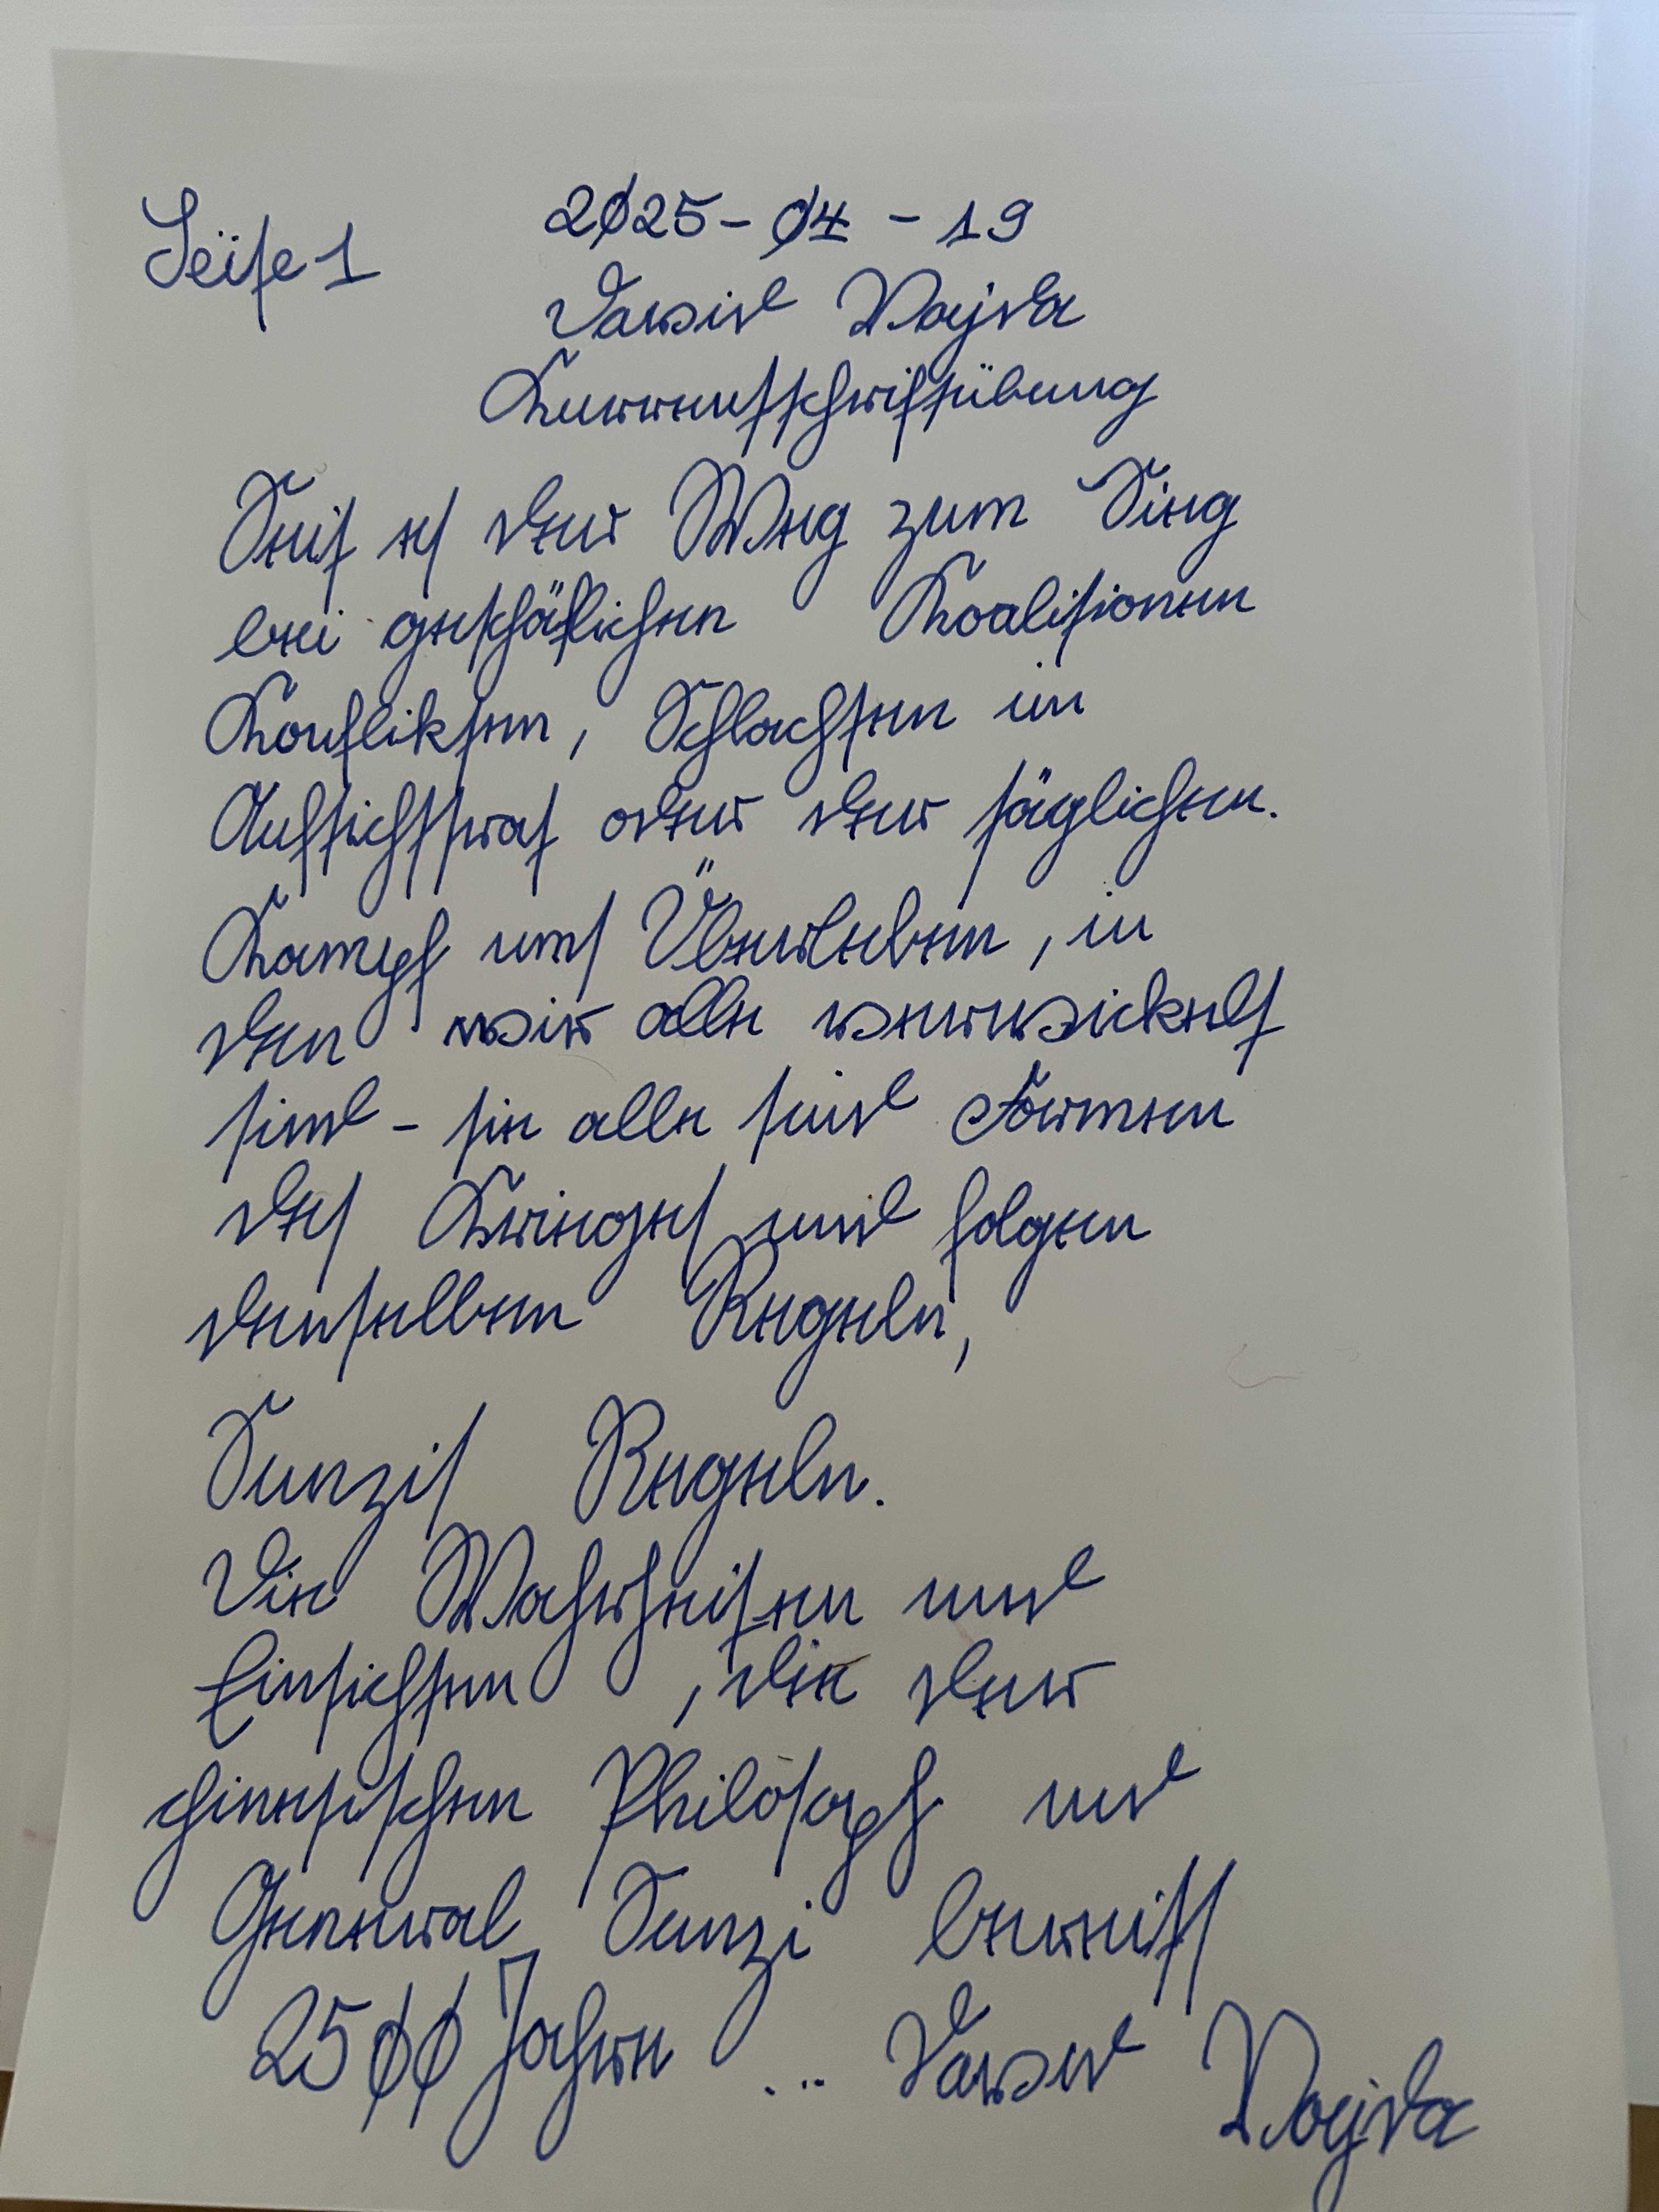 Seite 1
2025-04-19
David Vajda
Kurrentschriftübung
Seit es der Weg zum Sieg
bei geschäftlichen Koalitionen
Konflikten, Schlachten im
Aufsichtsrat oder der täglichen.
Kampf ums Überleben, in
den wir alle verwickelt
sind - sie alle sind Formen
des Krieges und folgen
denselben Regeln,
Sunzis Regeln.
Die Wahrheiten und
Einsichten, die der
chinesischen Philosoph und
General Sunzi bereits
2500 Jahren ... David Vajda